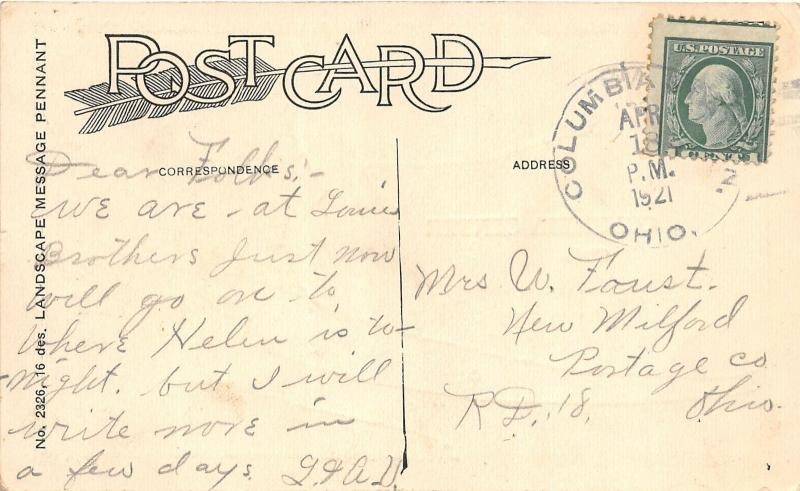 POST CARD
No. 2326, 16 des. LANDSCAPE MESSAGE PENNANT
CORRESPONDENCE
Dear Folks:-
We are - at Louis
Brothers just now
will go on to
where Helen is to-
night. but I will
write more in
a few days.
ADDRESS
Mrs W. Faust.
New Milford
Portage co
R.D. 18. Ohio.
U.S. POSTAGE
COLUMBIA
APR
18
P.M.
1921
OHIO.